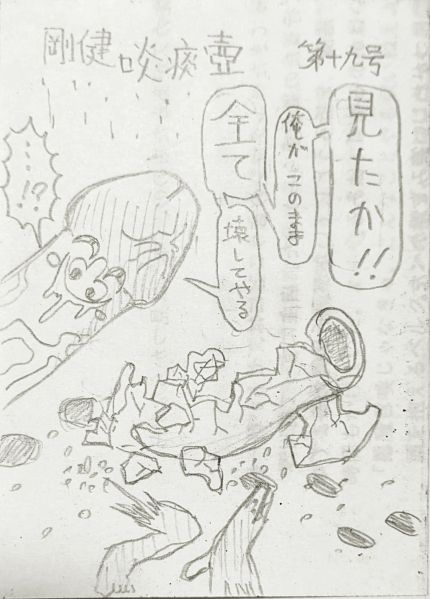 剛健啖痰壺 第十九号
見たか!!
俺がこのまま
全て
壊してやる
……!?